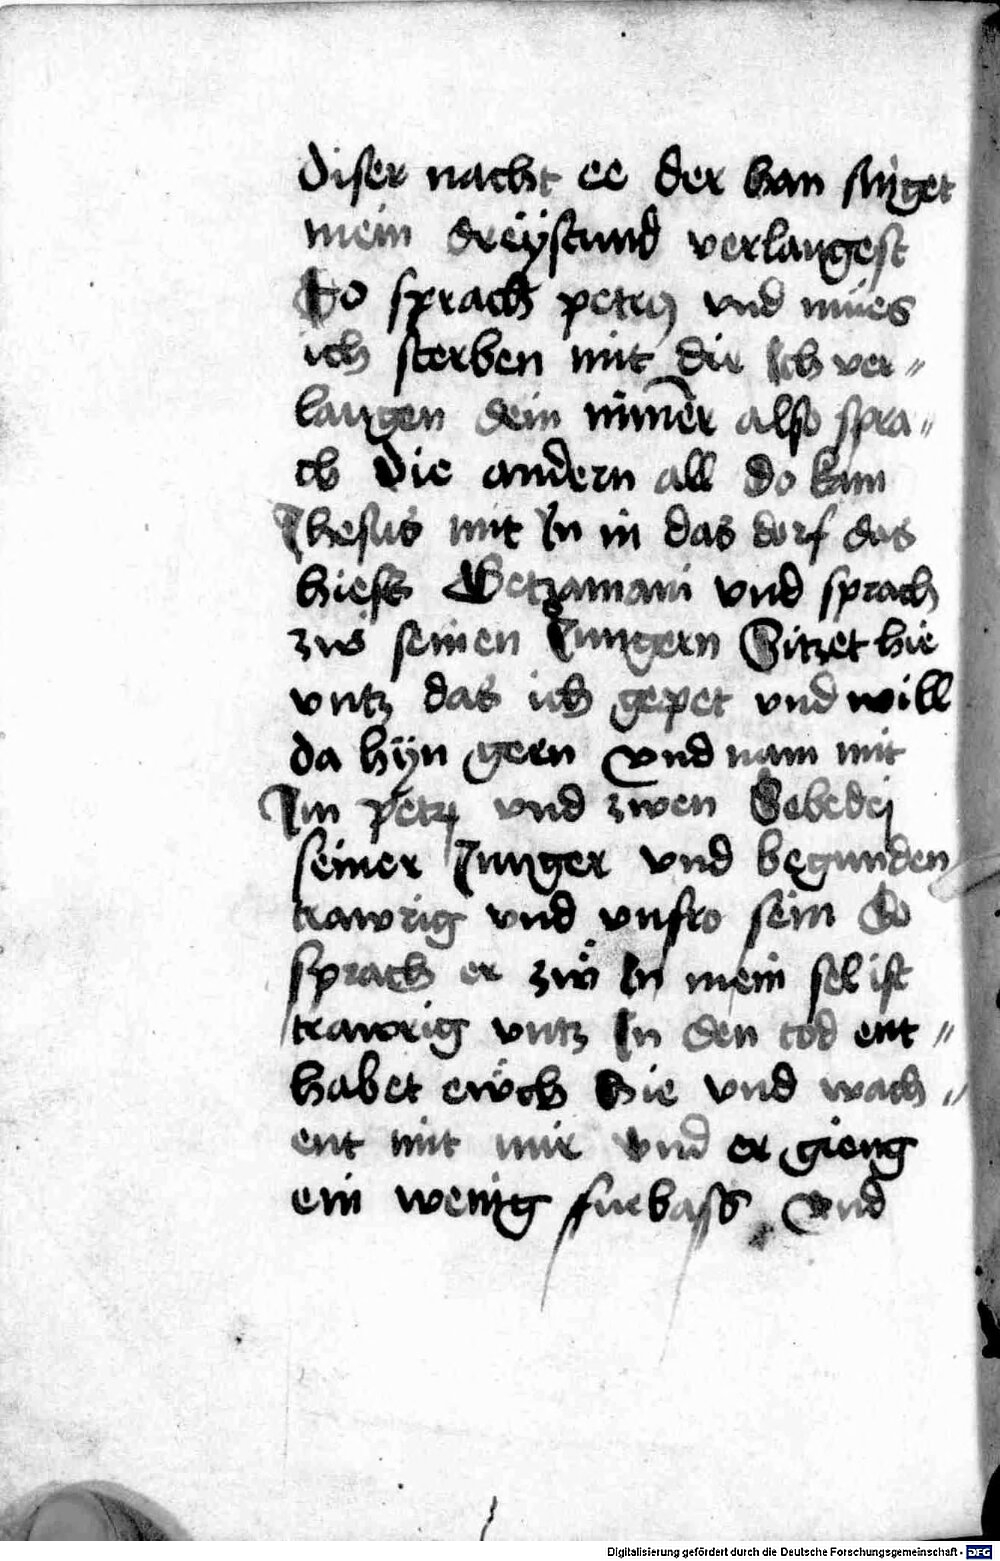 diser nacht ee der han singet
mein dreÿstund verlaugest
Do sprach petrus vnd mües
ich sterben mit dir Ich ver„
laugen dein nimer also spra„
ch die andern all do kam
Jhesus mit In in das dorf das
hiess Getzamani vnd sprach
zw seinen Jungern Sitzet hie
vntz das ich gepet vnd will
da hÿn geen Vnd nam mit
Im petrum vnd zwen Zebedej
seiner Junger vnd begunden
trawrig vnd vnfro sein Do
sprach er zẅ In mein sel ist
trawrig vntz In den tod ent„
habet ewch hie vnd wach„
ent mit mir vnd er gieng
ein wenig furbass Vnd
Digitalisierung gefördert durch die Deutsche Forschungsgemeinschaft - DFG